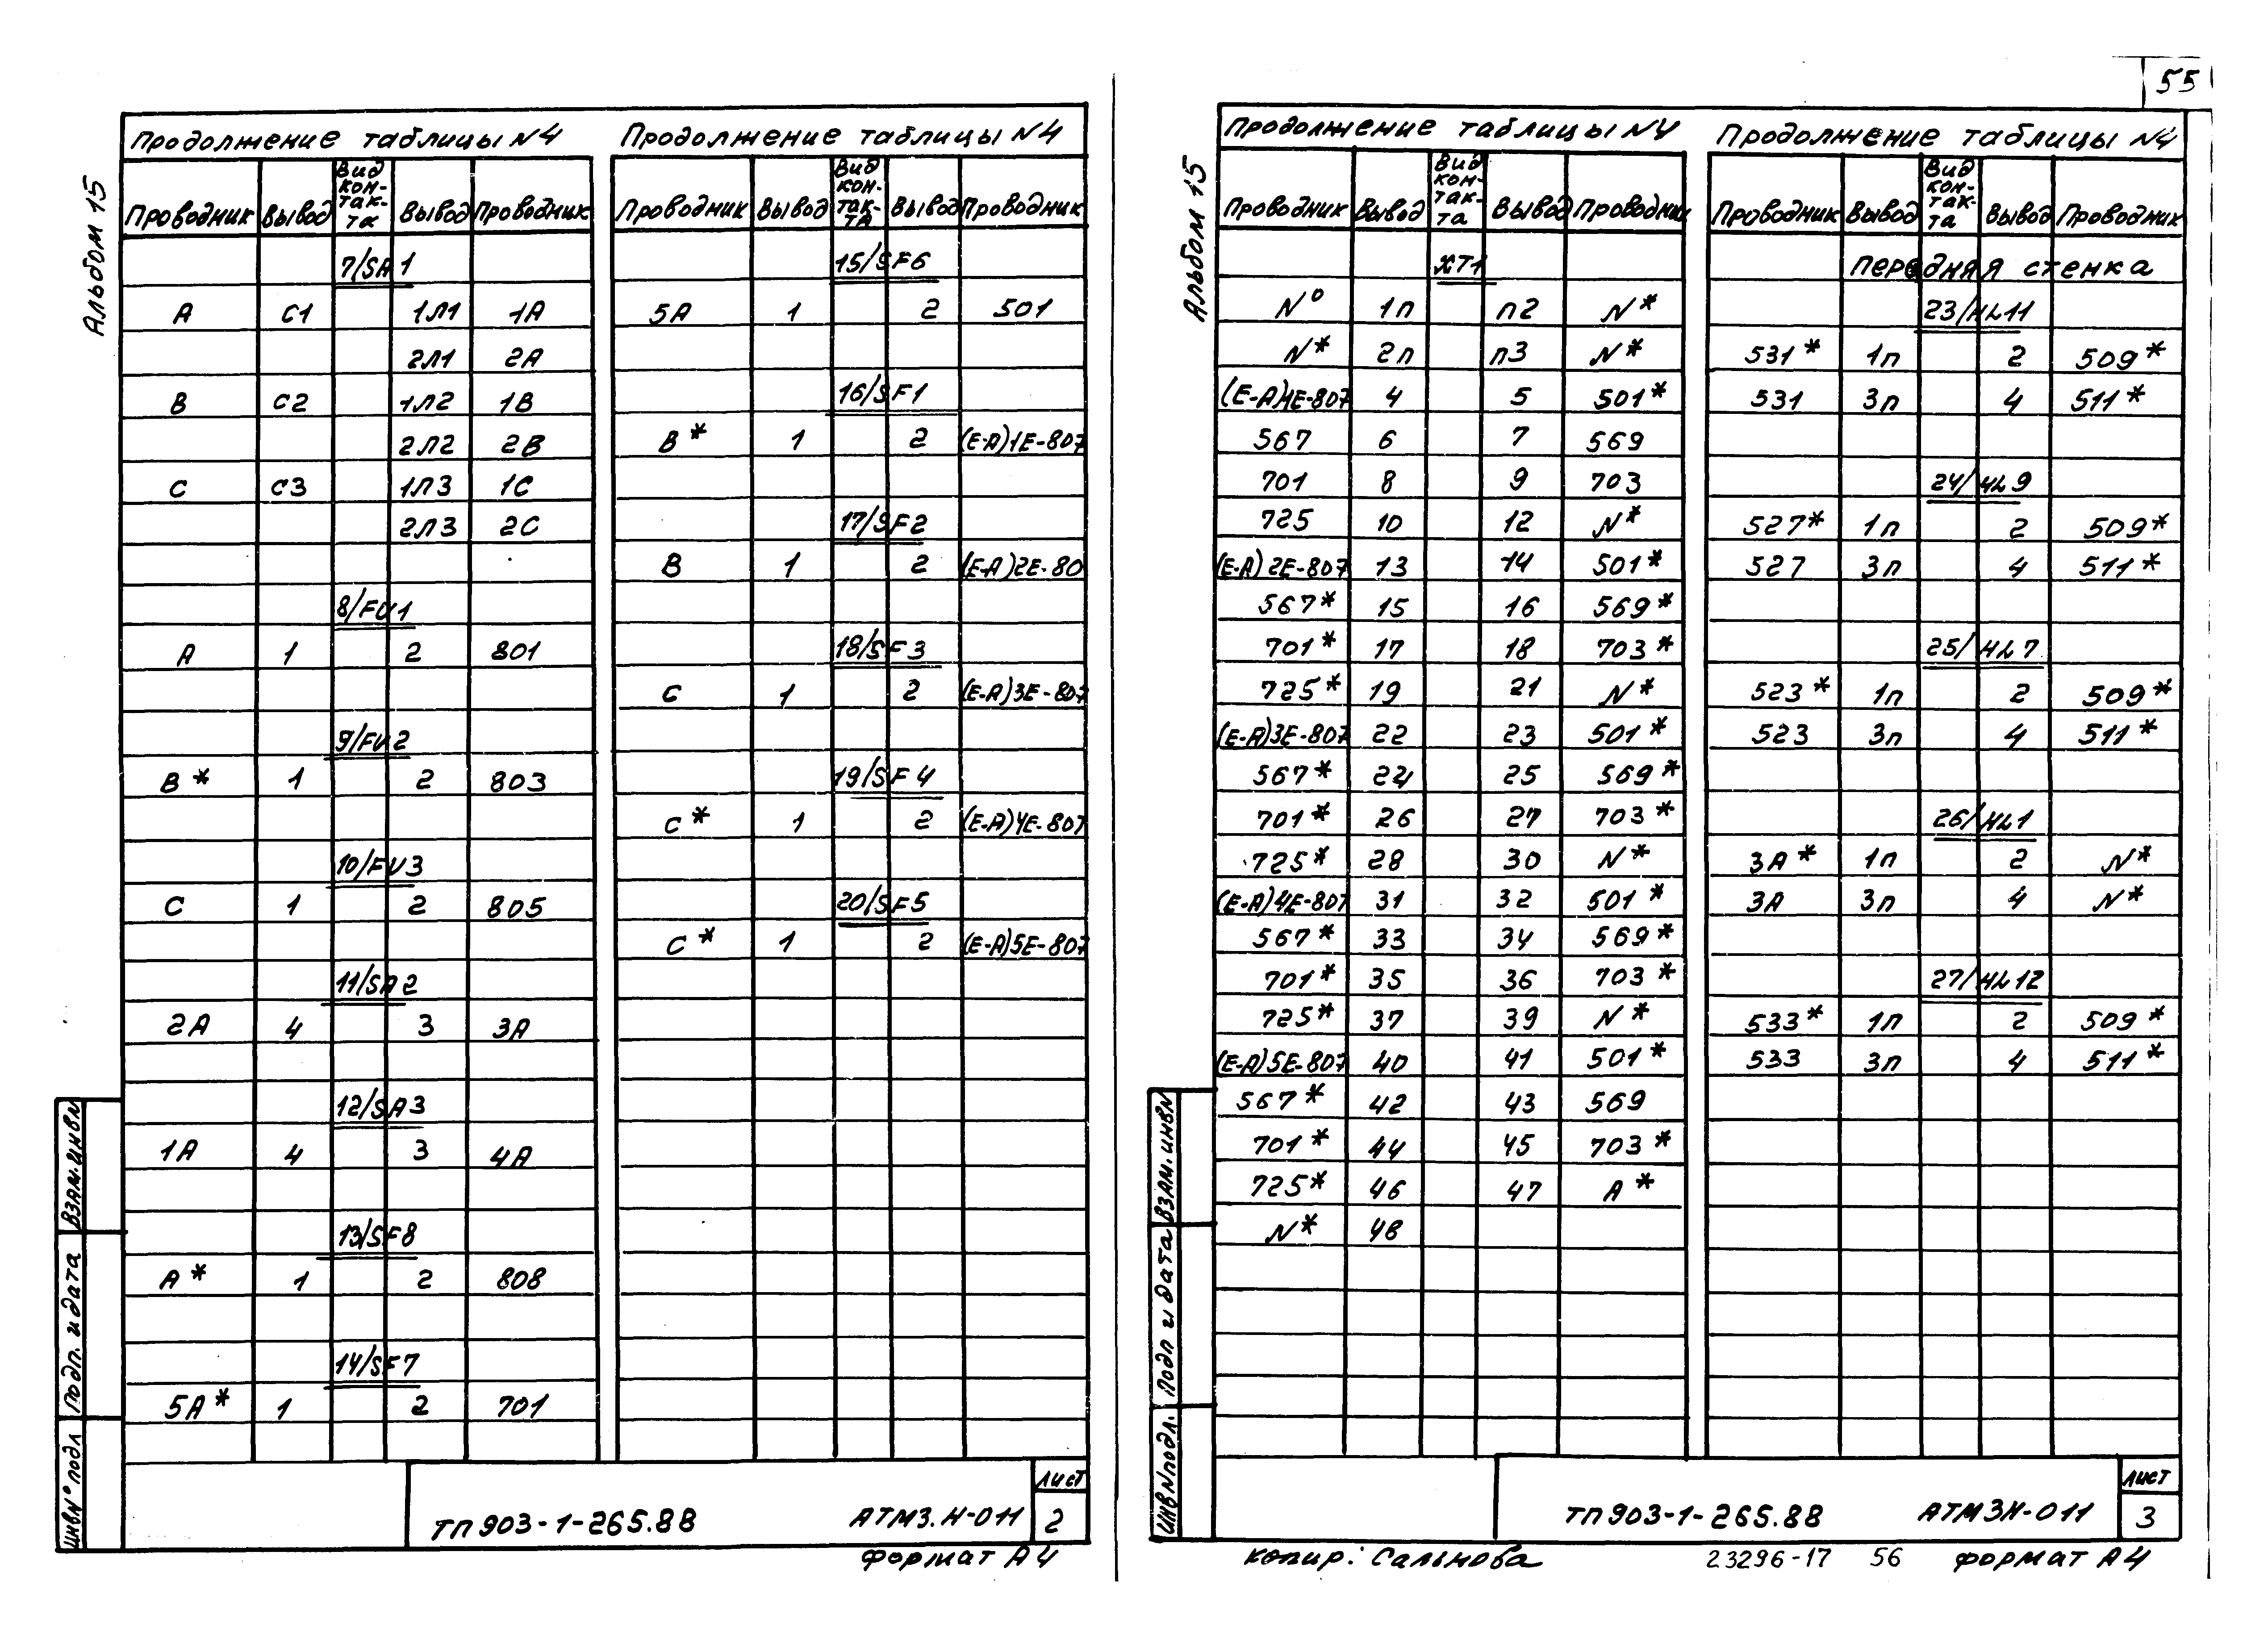 55
Альбом 15
Продолжение таблицы N4
Проводник Вывод Вид кон-так-та Вывод Проводник
7/SA1
А С1 1Л1 1А
2Л1 2А
В С2 1Л2 1В
2Л2 2В
С С3 1Л3 1С
2Л3 2С
8/FU1
А 1 2 801
9/FU2
В* 1 2 803
10/FU3
С 1 2 805
11/SA2
2А 4 3 3А
12/SA3
1А 4 3 4А
13/SF8
А* 1 2 808
14/SF7
5А* 1 2 701
Продолжение таблицы N4
Проводник Вывод Вид кон-так-та Вывод Проводник
15/SF6
5А 1 2 501
16/SF1
В* 1 2 (Е-А)1Е-807
17/SF2
В 1 2 (Е-А)2Е-80
18/SF3
С 1 2 (Е-А)3Е-807
19/SF4
С* 1 2 (Е-А)4Е-807
20/SF5
С* 1 2 (Е-А)5Е-807
ИНВ N° подл Подп. и дата ВЗАМ.ИНВN
ТП903-1-265.88 АТМ3.Н-011
Лист
2
Формат А4
Альбом 15
Продолжение таблицы N4
Проводник Вывод Вид кон-так-та Вывод Проводник
ХТ1
N° 1п п2 N*
N* 2п п3 N*
(Е-А)1Е-807 4 5 501*
567 6 7 569
701 8 9 703
725 10 12 N*
(Е-А)2Е-807 13 14 501*
567* 15 16 569*
701* 17 18 703*
725* 19 21 N*
(Е-А)3Е-807 22 23 501*
567* 24 25 569*
701* 26 27 703*
725* 28 30 N*
(Е-А)4Е-807 31 32 501*
567* 33 34 569*
701* 35 36 703*
725* 37 39 N*
(Е-А)5Е-807 40 41 501*
567* 42 43 569
701* 44 45 703*
725* 46 47 А*
N* 48
Продолжение таблицы N4
Проводник Вывод Вид кон-так-та Вывод Проводник
передняя стенка
23/HL11
531* 1п 2 509*
531 3п 4 511*
24/HL9
527* 1п 2 509*
527 3п 4 511*
25/HL7
523* 1п 2 509*
523 3п 4 511*
26/HL1
3А* 1п 2 N*
3А 3п 4 N*
27/HL12
533* 1п 2 509*
533 3п 4 511*
ИНВ N подл. Подп и дата ВЗАМ.ИНВN
ТП903-1-265.88 АТМ3Н-011
Лист
3
копир: Сальнова 23296-17 56 Формат А4